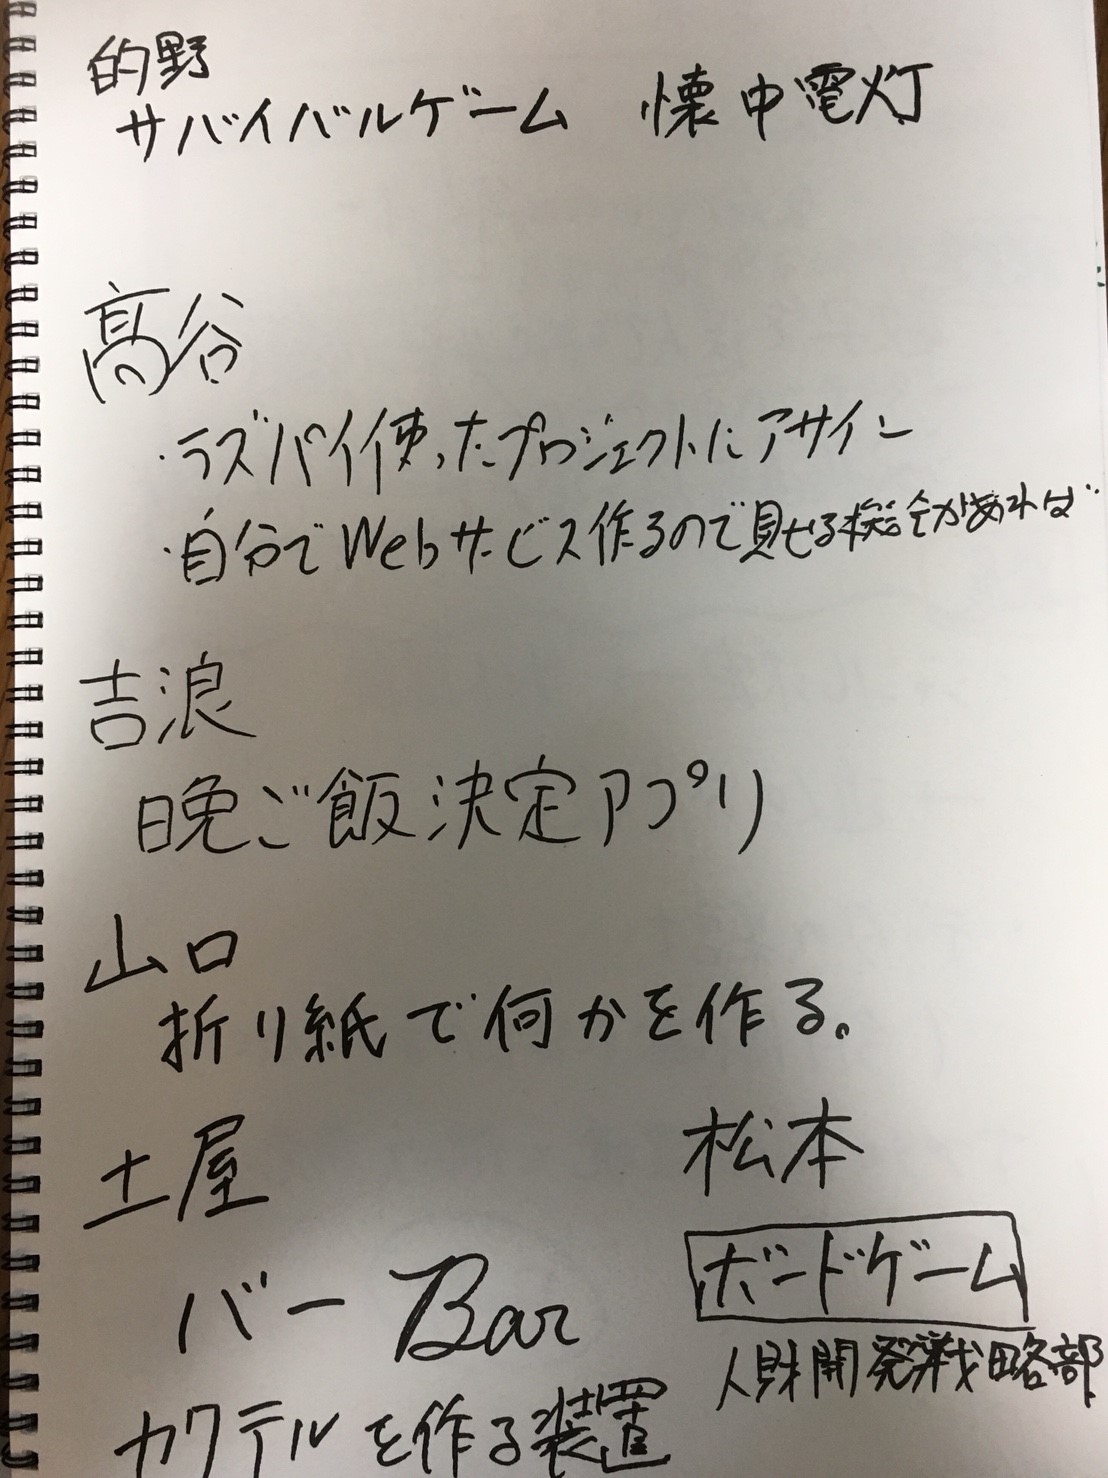 的野
サバイバルゲーム 懐中電灯
髙谷
・ラズパイ使ったプロジェクトにアサイン
・自分でWebサービス作るので見せる機会があれば
吉浪
晩ご飯決定アプリ
山口
折り紙で何かを作る。
土屋
バー Bar
カクテルを作る装置
松本
ボードゲーム
人財開発戦略部